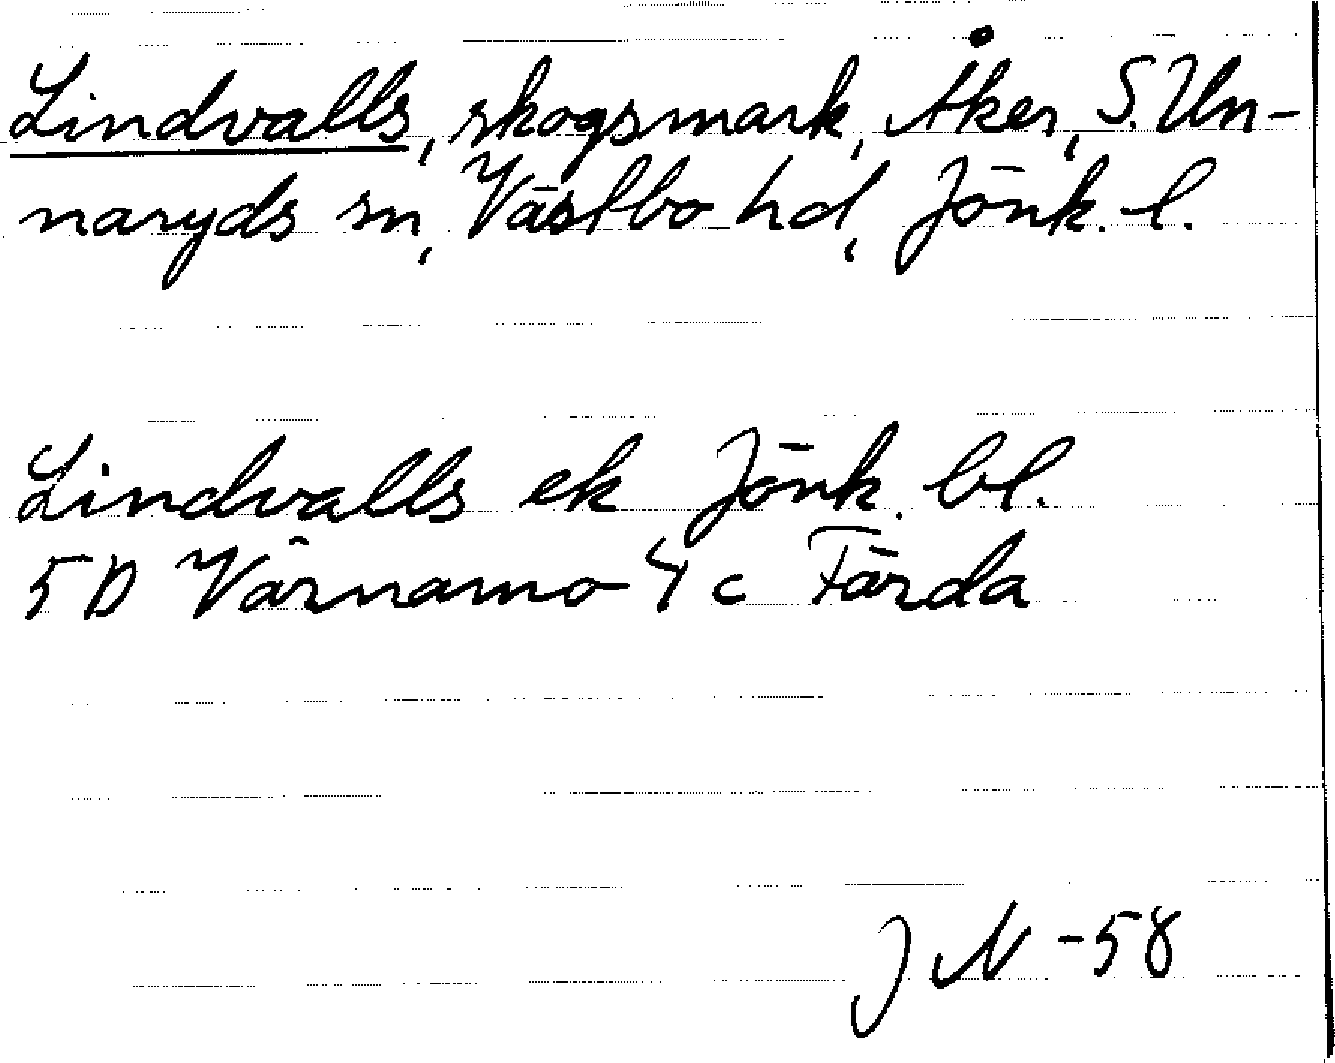 Lindvalls, skogsmark, Åker, S. Un-
naryds sn, Västbo hd, Jönk. l.
Lindvalls ek Jönk. bl.
5D Värnamo 4 c Färda
J N -58